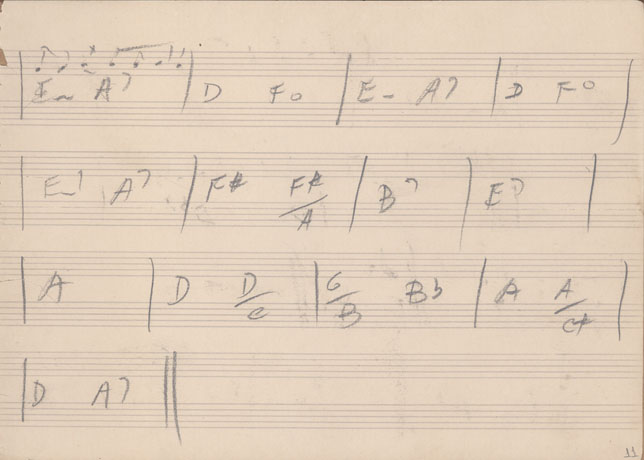 E- A7 | D Fo | E- A7 | D Fo
E-7 A7 | F# F#/A | B7 | E7
A | D D/C | G/B Bb | A A/C#
D A7
11